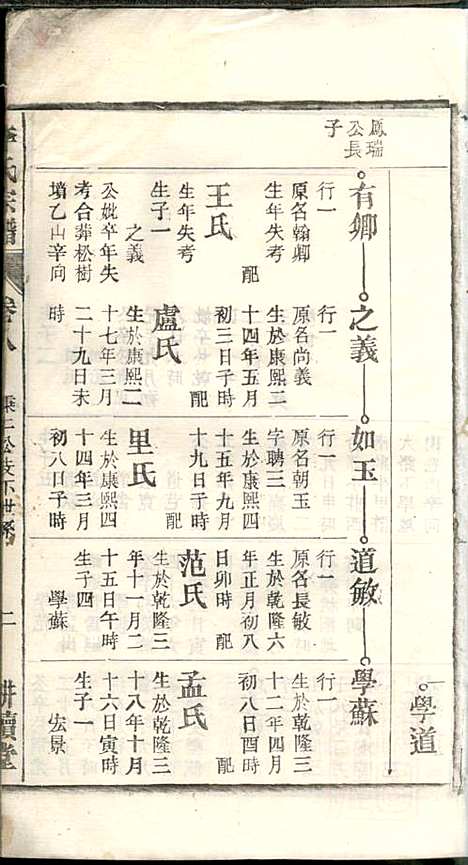 鳳瑞
公長
子
有卿
行一
原名翰卿
生年失考
配
王氏
生年失考
生子一
之義
公妣卒年失
考合葬松樹
墳乙山辛向
之義
行一
原名尚義
生於康熙三
十四年五月
初三日子時
配
盧氏
生於康熙二
十七年三月
二十九日未
時
如玉
行一
原名朝玉
字聘三
生於康熙四
十五年九月
十九日子時
配
里氏
生於康熙四
十四年三月
初八日子時
道敏
行一
原名長敏
生於乾隆六
年正月初八
日卯時
配
范氏
生於乾隆三
年十一月二
十五日午時
生子四
學蘇
學蘇
行一
生於乾隆三
十二年四月
初八日酉時
配
孟氏
生於乾隆三
十八年十月
十六日寅時
生子一
宏景
學道
氏宗譜
卷八
二
耕讀堂